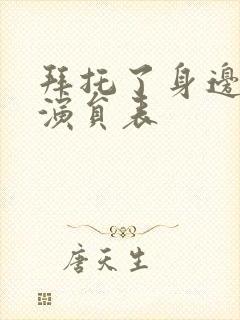 拜托了身邊
演員表
唐天生